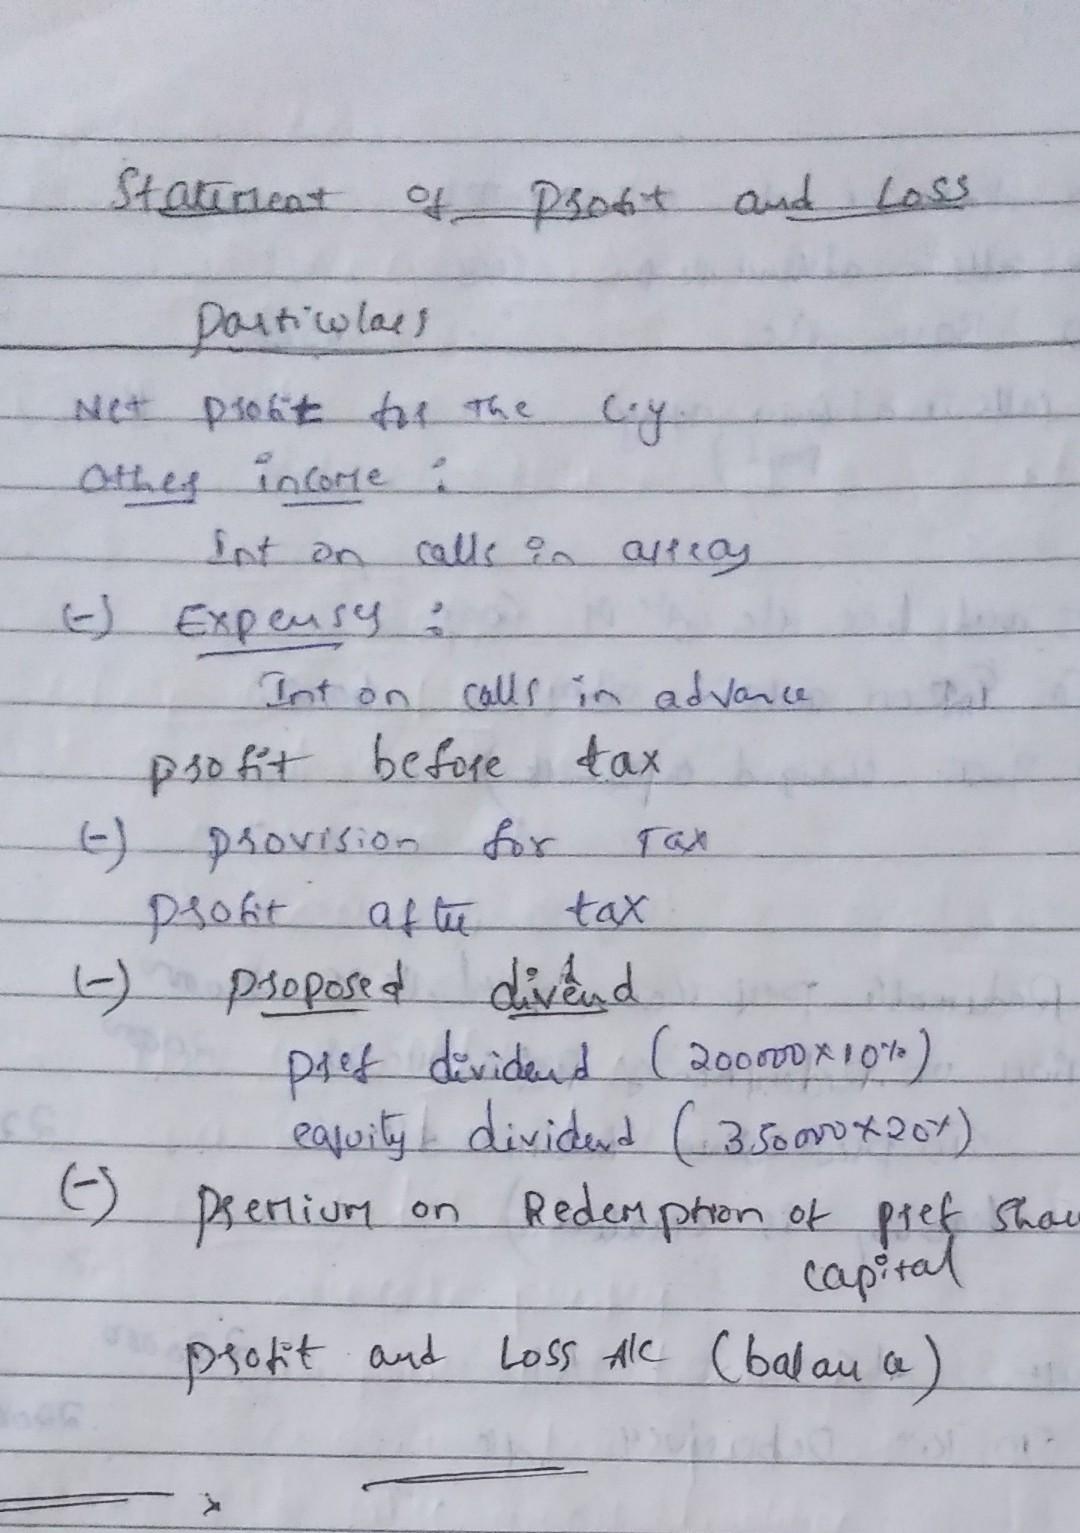 Statement of Profit and Loss
Particulars
Net profit for the C.y
Other income :
Int on calls in arrears
(-) Expenses :
Int on calls in advance
profit before tax
(-) provision for Tax
profit after tax
(-) proposed divend
pref dividend (200000×10%)
equity dividend (350000×20%)
(-) Premium on Redemption of pref Share
capital
profit and Loss A/c (balance)